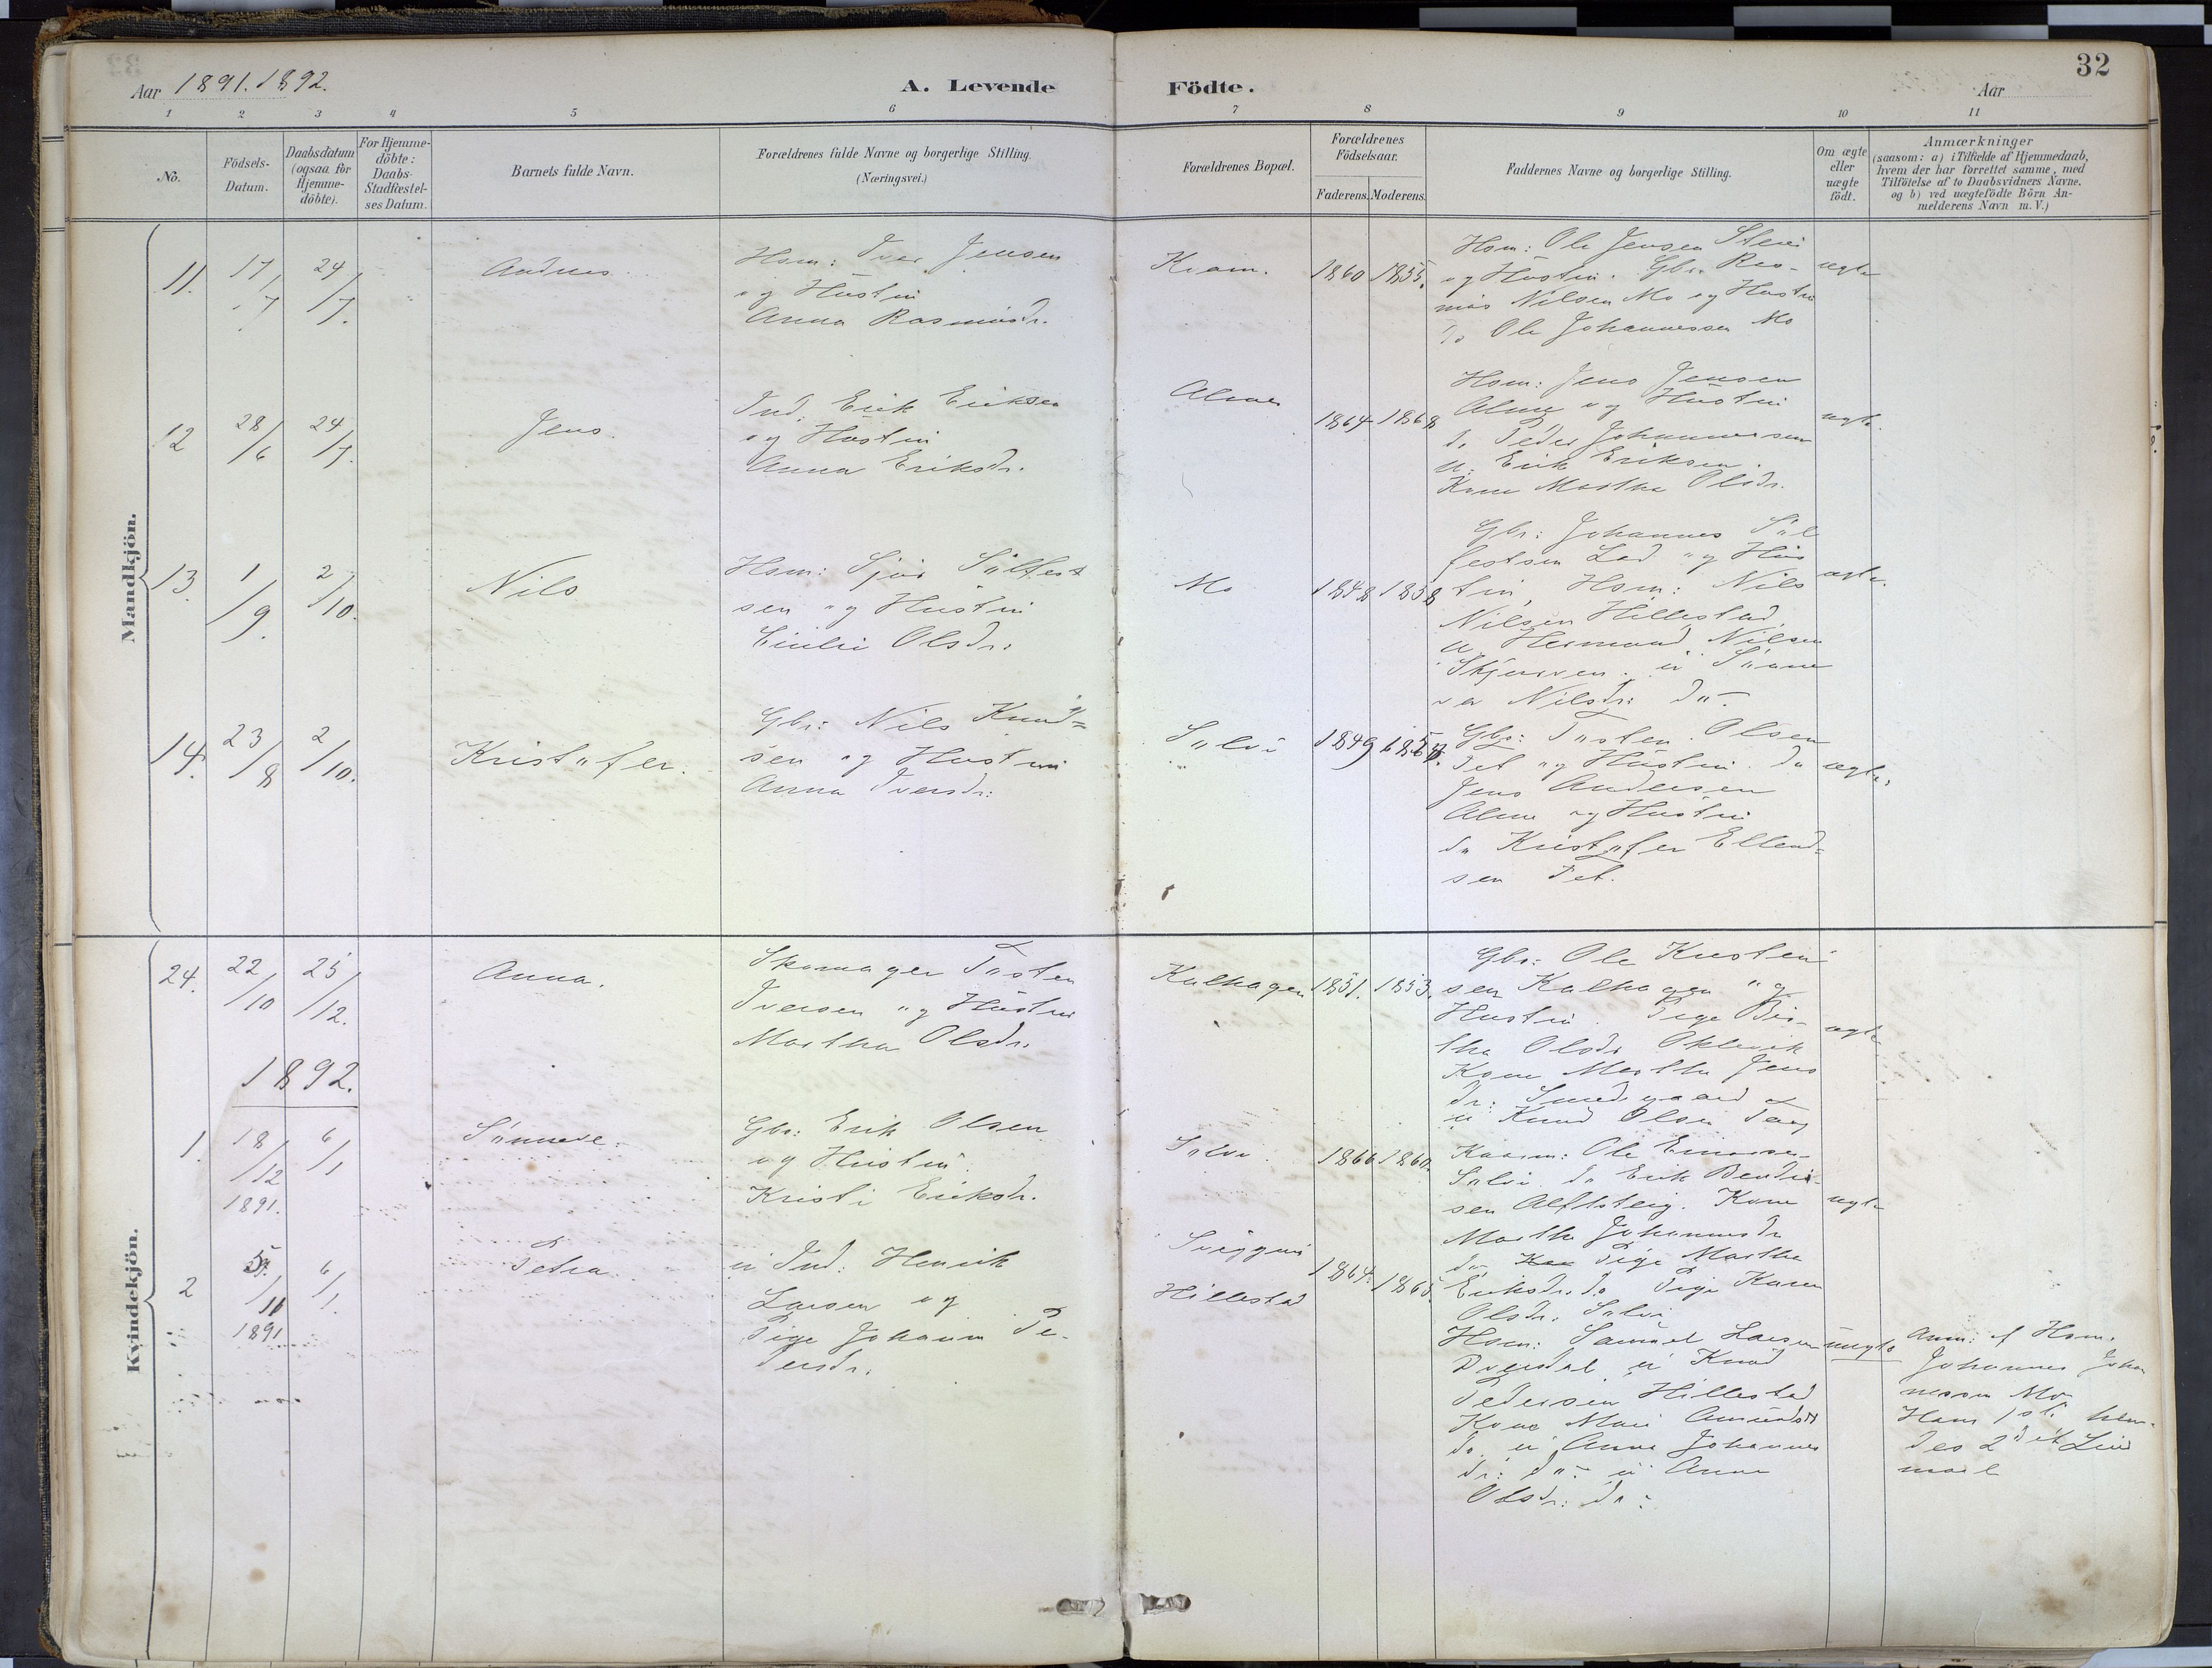 32
Aar 1891. 1892.
A. Levende Födte.
Aar
1 2 3 4 5 6 7 8 9 10 11
No.
Födsels-
Datum.
Daabsdatum
(ogsaa for
Hjemme-
döbte).
For Hjemme-
döbte:
Daabs-
Stadfæstel-
ses Datum.
Barnets fulde Navn.
Forældrenes fulde Navne og borgerlige Stilling.
(Næringsvei.)
Forældrenes Bopæl.
Forældrenes
Födselsaar.
Faderens. Moderens.
Faddernes Navne og borgerlige Stilling.
Om ægte
eller
uægte
födt.
Anmærkninger
(saasom: a) i Tilfælde af Hjemmedaab,
hvem der har forrettet samme, med
Tilföielse af to Daabsvidners Navne,
og b) ved uægtefödte Börn An-
melderens Navn m. V.)
Mandkjön.
11. 17/7 24/7.
Andreas
Hsm: Iver Jensen
og Hustru
Anna Rasmusdr.
Kvam.
1860 1855.
Hsm: Ole Jensen
og Hustru. Gbr. Ras-
mus Nilsen Mo og Hustru
do Ole Johannessen Mo
ægte
12 28/6 24/7.
Jens.
Ind. Erik Eriksen
og Hustru
Anna Eriksdr.
Alme
1864 1868
Hsm: Jens Jensen
Alme og Hustru
do Peder Johannessen
u: Erik Eriksen.
Kone Martha Olsdr.
ægte.
13. 1/9. 2/10.
Nils
Hsm: Sjur Sülfest
sen og Hustru
Olsdr:
Mo
1848 1858
Gbr: Johannes Sül
festsen Lad og Hus
tru, Hsm: Nils
Nilsen Hillestad.
u. Hermund Nilsen
Nilsdr: do.
ægte.
14. 23/8 2/10.
Kristofer.
Gbr: Nils Knud=
sen og Hustru
Anna Iversdr:
Sølvi
1849
Gbr: Tosten Olsen
Tet og Hustru. do
Jens Andersen
Alme og Hustru
do Kristofer Ellend=
sen Tet.
ægte.
Kvindekjön.
24. 22/10 25/12.
Anna.
Skomager Tosten
Iversen og Hustru
Martha Olsdr.
Kalhagen
1851. 1853.
Gbr: Ole Kristen
sen Kalhagen og
Hustru. Pige Bri-
tha Olsdr
Kone Martha Jens
dr:
u Knud Olsen
ægte
1892.
1. 18/12 1891. 6/1
Sünneve.
Gbr: Erik Olsen
og Hustru
Kristi Eriksdr.
Sølvi.
1866 1860.
Ole
Sølvi. do Erik
sen Kone
Martha Johannesdr
do Pige Martha
Eriksdr. do Pige Karen
Olsdr. Sølvi
ægte
2 5/11 1891 6/1.
Petra.
u Ind: Henrik
Larsen og
Pige Johanna Pe-
dersdr.
Hillestad
1864. 1865.
Hsm: Samuel Larsen
u Knud
Pedersen Hillestad
Kone Mari
do. u Anna Johannes
dr: do: u Anna
Olsdr: do:
uægte
Anm: af Hsm.
Johannes Johan
nesen Mo
Hans 1st. hen-
des 2det Leier
maal